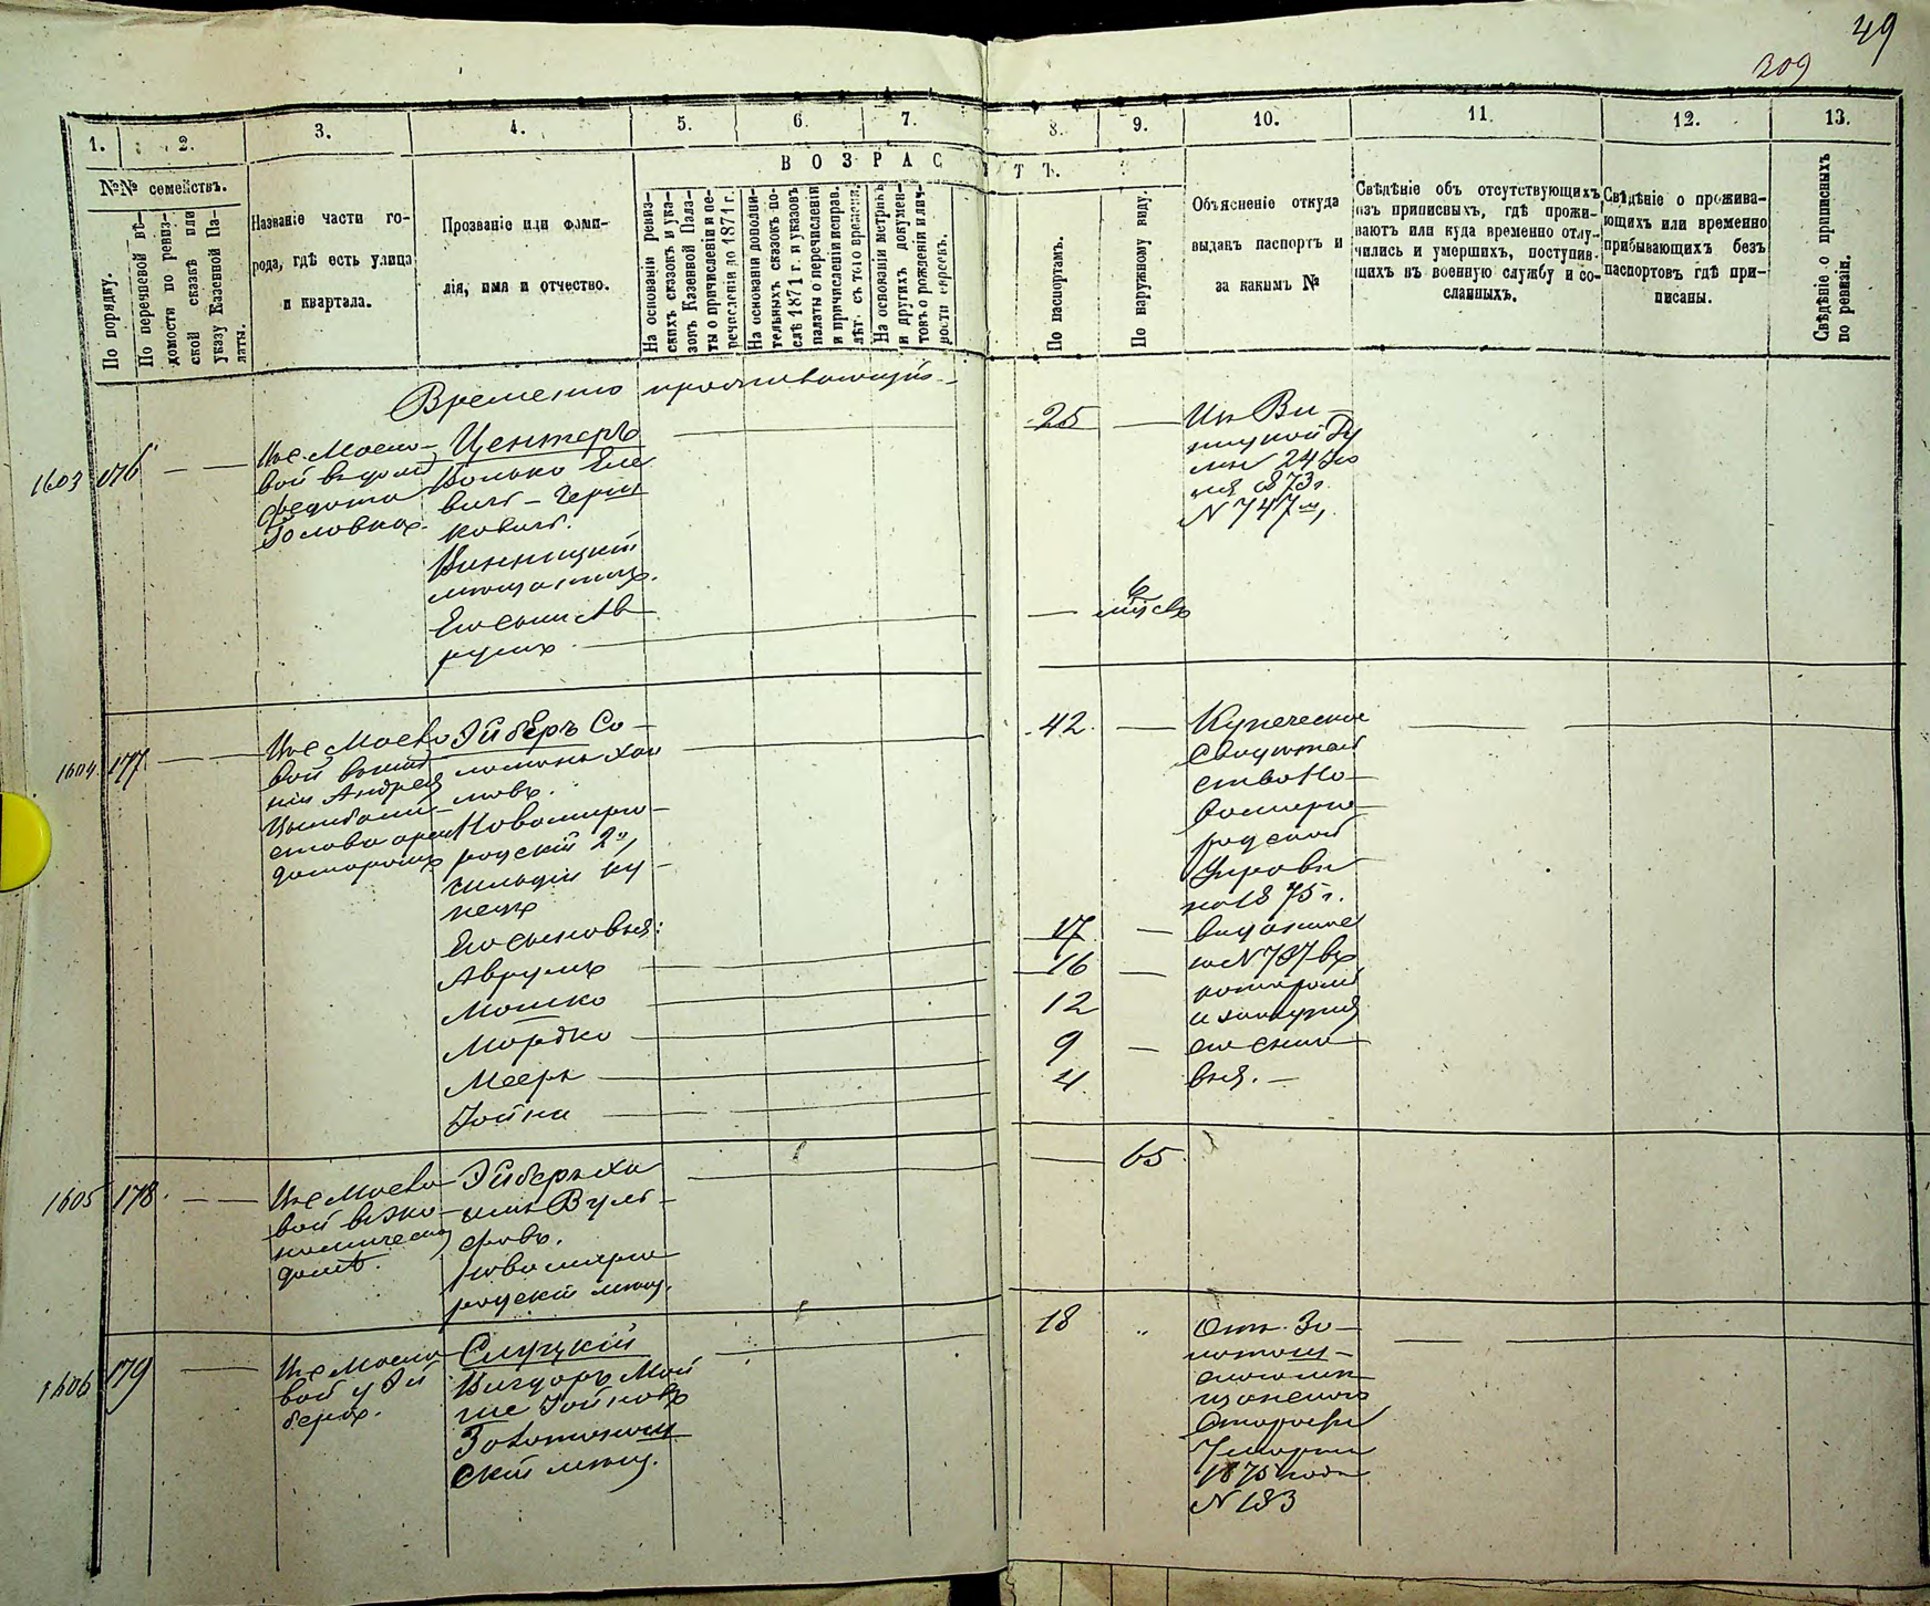 49
209
1.
2.
3.
4.
5.
6.
7.
8.
9.
10.
11.
12.
13.
№№ семействъ.
По порядку.
По перечневой вѣ-
домости по ревиз-
ской сказкѣ или
указу Казенной Па-
латы.
Названіе части го-
рода, гдѣ есть улица
и квартала.
Прозваніе или фами-
лія, имя и отчество.
ВОЗРАСТЪ.
На основаніи ревиз-
скихъ сказокъ и ука-
зовъ Казенной Пала-
ты о причисленіи и пе-
речисленіи до 1871 г.
На основаніи дополни-
тельныхъ сказокъ по-
слѣ 1871 г. и указовъ
палаты о перечисленіи
и причисленіи исправ.
лѣт. съ того времени.
На основаніи метрикъ
и другихъ докумен-
товъ о рожденіи и лич-
ности евреевъ.
По паспортамъ.
По наружному виду.
Объясненіе откуда
выданъ паспортъ и
за какимъ №
Свѣдѣніе объ отсутствующихъ
изъ приписныхъ, гдѣ прожи-
ваютъ или куда временно отлу-
чились и умершихъ, поступив-
шихъ въ военную службу и со-
сланныхъ.
Свѣдѣніе о прожива-
ющихъ или временно
прибывающихъ безъ
паспортовъ гдѣ при-
писаны.
Свѣдѣніе о приписныхъ
по ревизіи.
Временно проживающій
1603 176
вой въ домѣ
Федота
Головка
Центеръ
Волько Еле
вичъ – Герш
ковичъ.
Винницкій
мѣщанинъ.
Его сынъ Ав
румъ
25
6
мѣсъ
Изъ Ви
ницкой Ду
мы 24 Iю
ля 1873 г.
N 747
1604 177
вой
Андрея
Эйберъ Со
ломонъ Хаи
мовъ.
Новомирго
родскій 2й
гильдіи ку
пецъ
Его сыновья:
Аврумъ
Мошко
Мордко
Мееръ
Iойна
42
17
16
12
9
4
Купеческое
Свидѣтель
ство Но
вомирго
родской
Управы
на 1875 г.
выданное
за N 787 въ
которомъ
и значутся
его сыно
вья.
1605 178
вой въ эко
номическомъ
домѣ.
Эйберъ Ха
имъ Вуль
фовъ.
Новомирго
родскій мѣщ.
65
1606 179
вой у Эй
бера.
Слуцкій
Вигдоръ Мой
ше Iойновъ
Золотонош
скій мѣщ.
18
Отъ Зо
лотонош
ского мѣ
щанского
Старосты
7 Марта
1875 года
N 183